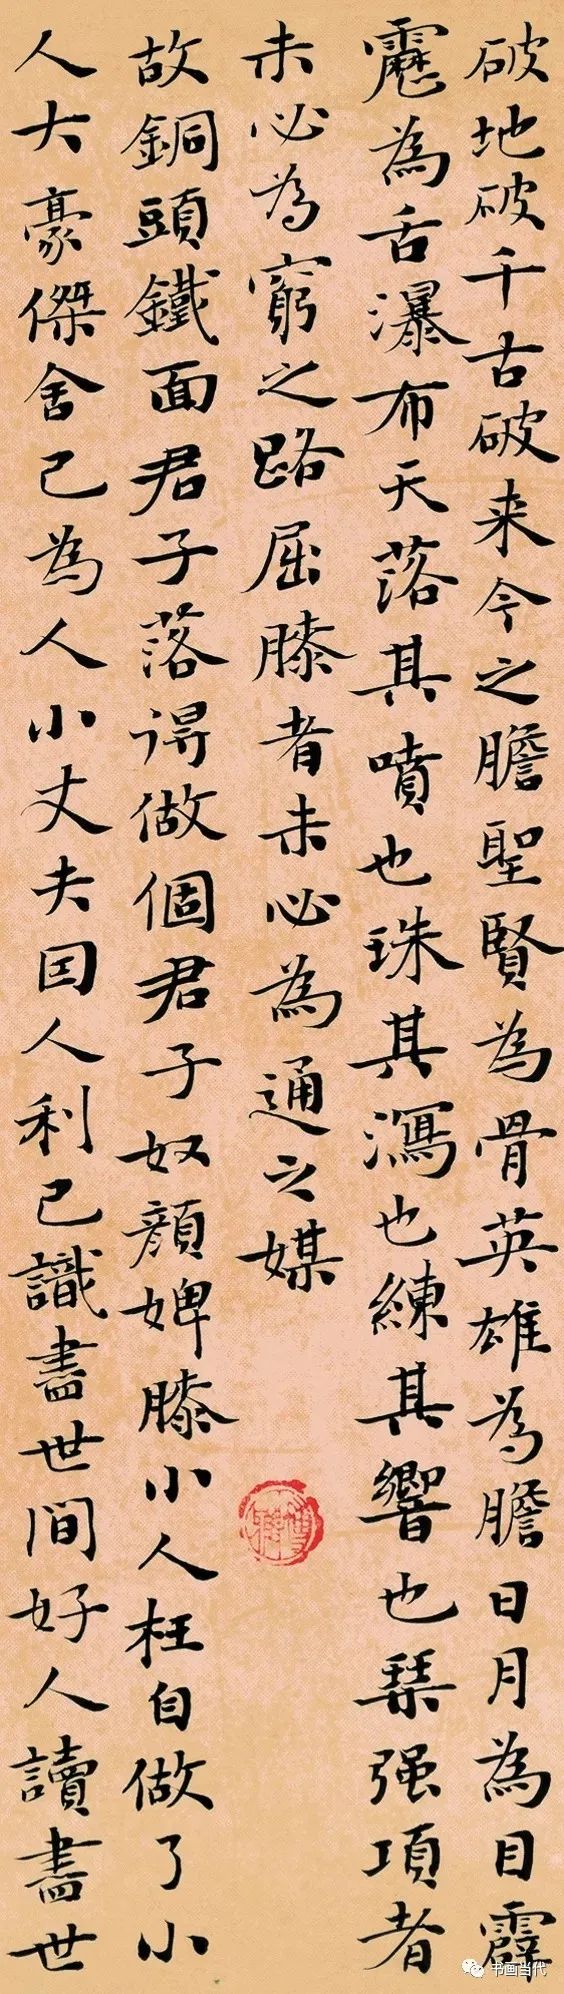 破地破千古破来今之膽聖賢為骨英雄為膽日月為目霹
靂為舌瀑布天落其噴也珠其瀉也練其響也琹强項者
未必為窮之路屈膝者未必為通之媒
故銅頭鐵面君子落得做個君子奴顔婢膝小人枉自做了小
人大豪傑舍己為人小丈夫因人利己識盡世間好人讀盡世
书画当代